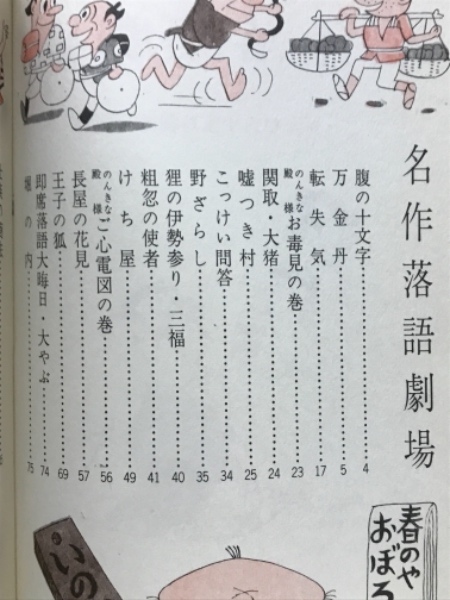 名作落語劇場
腹の十文字 4
万金丹 5
転失気 17
のんきな殿様お毒見の巻 23
関取・大猪 24
嘘つき村 25
こっけい問答 34
野ざらし 35
狸の伊勢参り・三福 40
粗忽の使者 41
けち屋 49
のんきな殿様ご心電図の巻 56
長屋の花見 57
王子の狐 69
即席落語大晦日・大やぶ 74
堀の内 75
春のや
おぼろ
いの